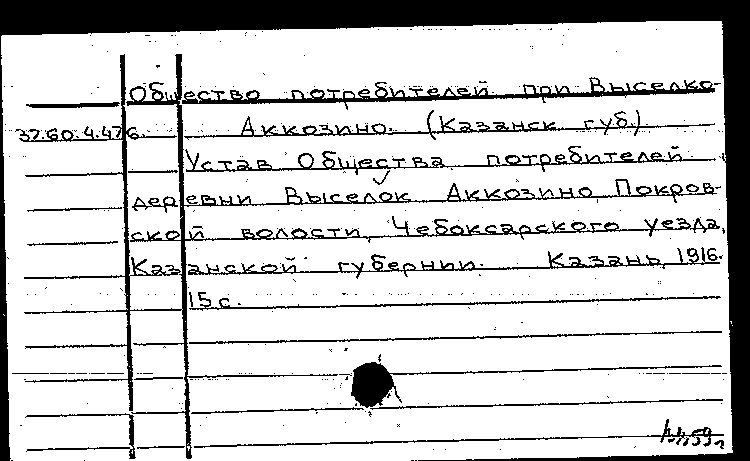 Общество потребителей при Выселко-
37.60.4.476. Аккозино. (Казанск. губ.)
Устав Общества потребителей
деревни Выселок Аккозино, Покров-
ской волости, Чебоксарского уезда,
Казанской губернии. Казань, 1916.
15 с.